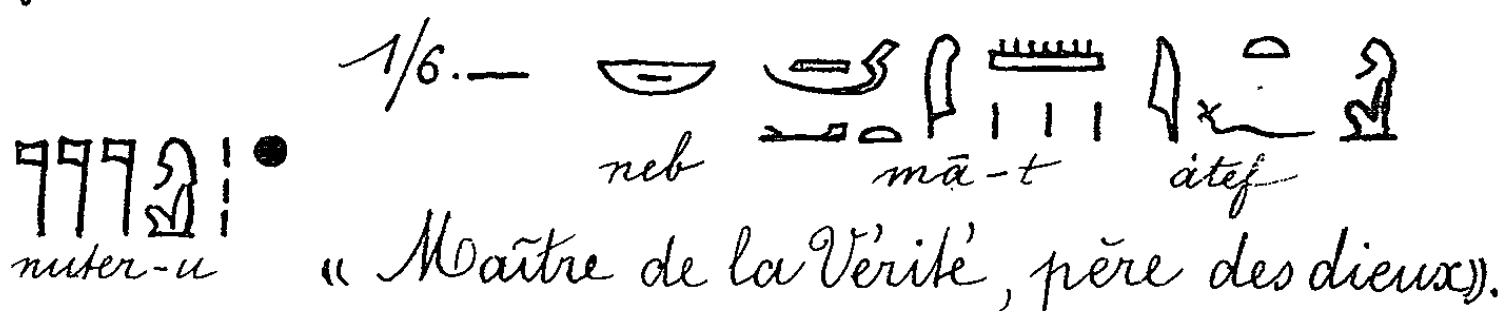 1/6.—
neb mā-t àtef
nuter-u
« Maître de la Vérité, père des dieux».